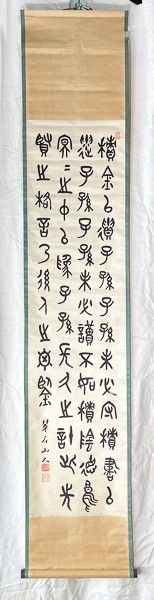 積金以遺子孫子孫未必守積書以
遺子孫子孫未必讀不如積陰德於
冥冥之中以為子孫長久之計此先
賢之格言乃後人之龜鑑
石山人